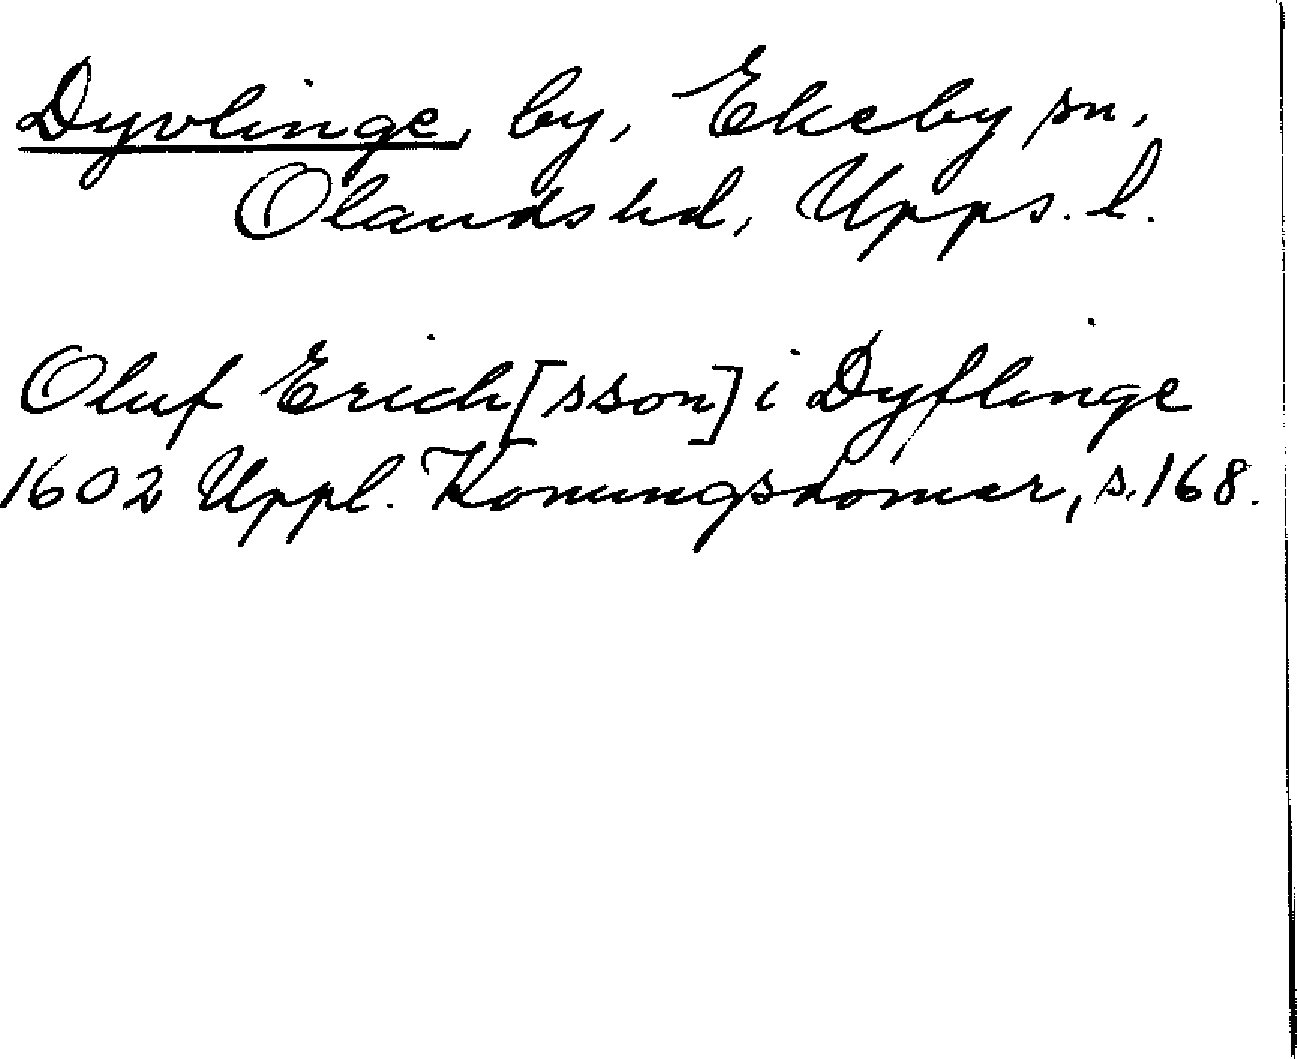 Dyvlinge, by, Ekeby sn,
Olands hd, Upps. l.
Oluf Erich[sson] i Dyflinge
1602 Uppl. Konungsdomar, s. 168.